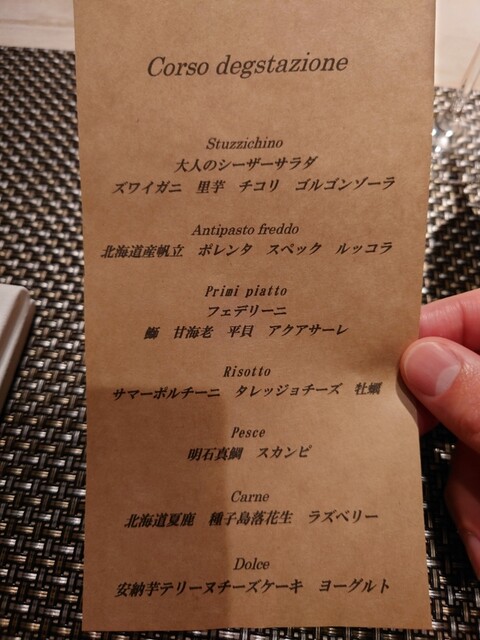 Corso degstazione
Stuzzichino
大人のシーザーサラダ
ズワイガニ 里芋 チコリ ゴルゴンゾーラ
Antipasto freddo
北海道産帆立 ポレンタ スペック ルッコラ
Primi piatto
フェデリーニ
鰤 甘海老 平貝 アクアサーレ
Risotto
サマーポルチーニ タレッジョチーズ 牡蠣
Pesce
明石真鯛 スカンピ
Carne
北海道夏鹿 種子島落花生 ラズベリー
Dolce
安納芋テリーヌチーズケーキ ヨーグルト